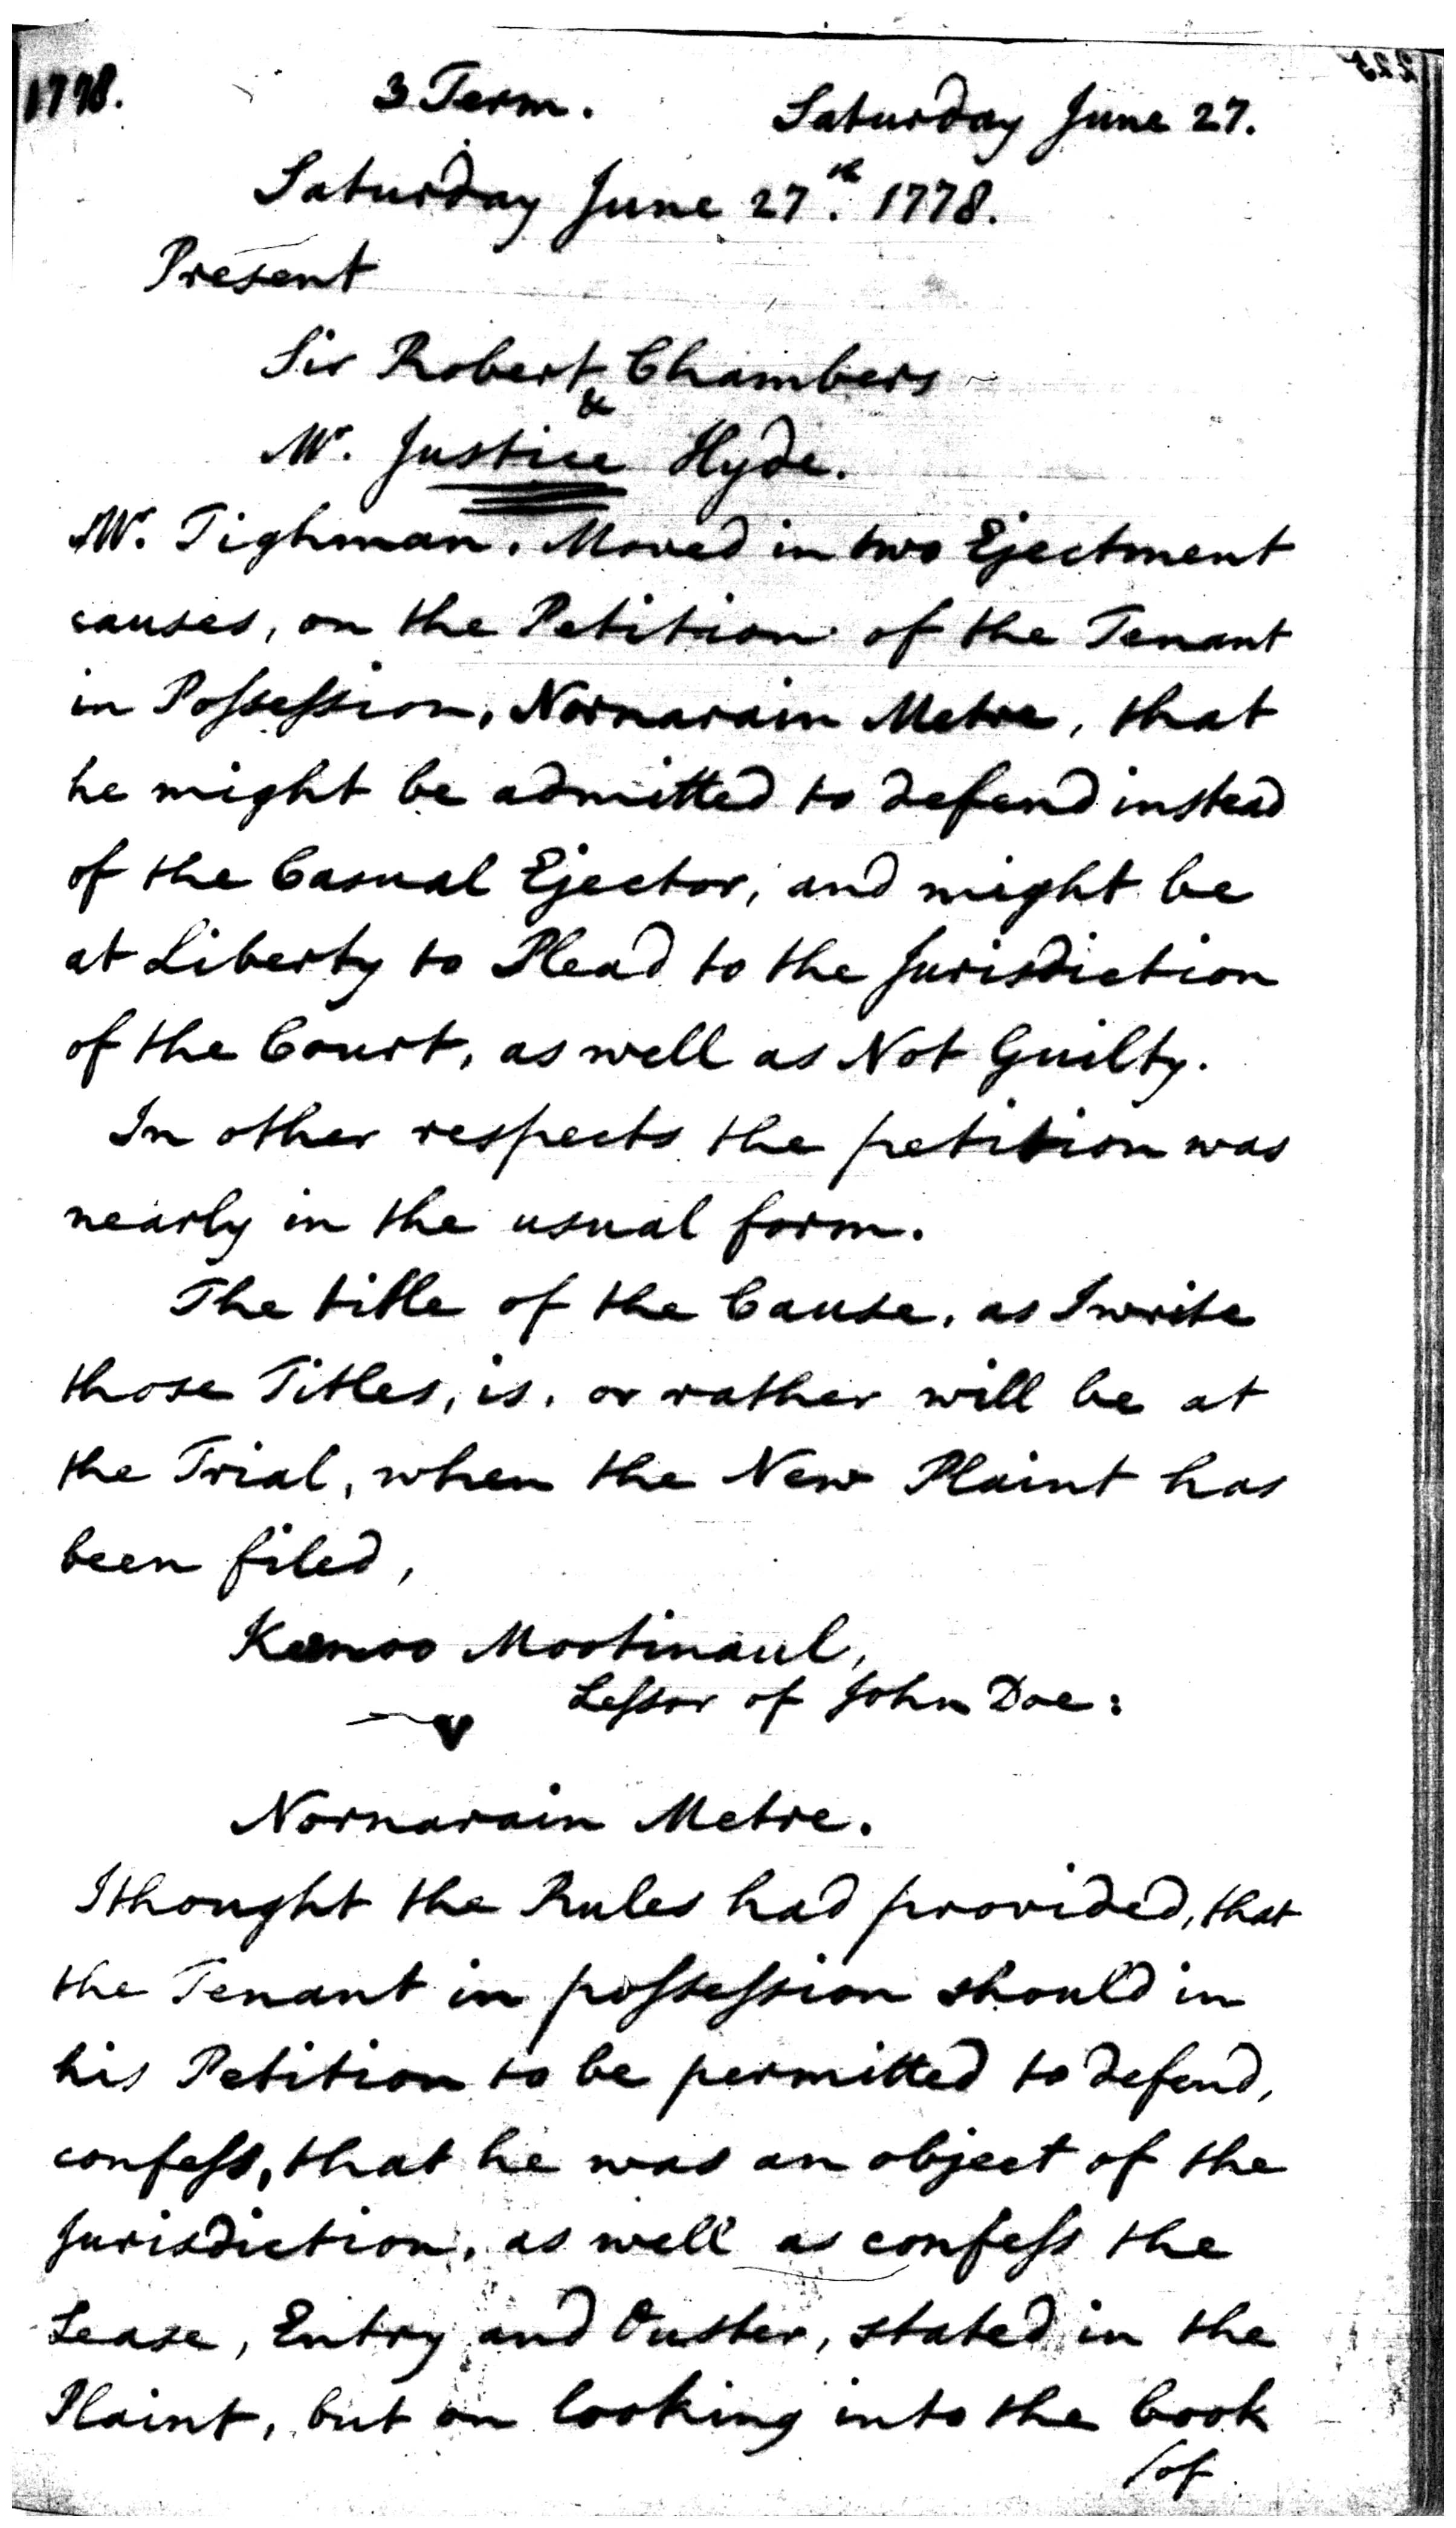 1778. 3 Term. Saturday June 27.
Saturday June 27.th 1778.
Present
Sir Robert Chambers
&
Mr. Justice Hyde.
Mr. Tighman. Moved in two Ejectment
causes, on the Petition of the Tenant
in Possession, Nornarain Metre, that
he might be admitted to defend instead
of the Casual Ejector, and might be
at Liberty to Plead to the Jurisdiction
of the Court, as well as Not Guilty.
In other respects the petition was
nearly in the usual form.
The title of the Cause, as I write
those Titles, is, or rather will be at
the Trial, when the New Plaint has
been filed,
Mootinaul,
Lessor of John Doe:
v
Nornarain Metre.
I thought the Rules had provided, that
the Tenant in possession should in
his Petition to be permitted to defend,
confess, that he was an object of the
Jurisdiction, as well as confess the
Lease, Entry and Ouster, stated in the
Plaint, but on looking into the book
/of